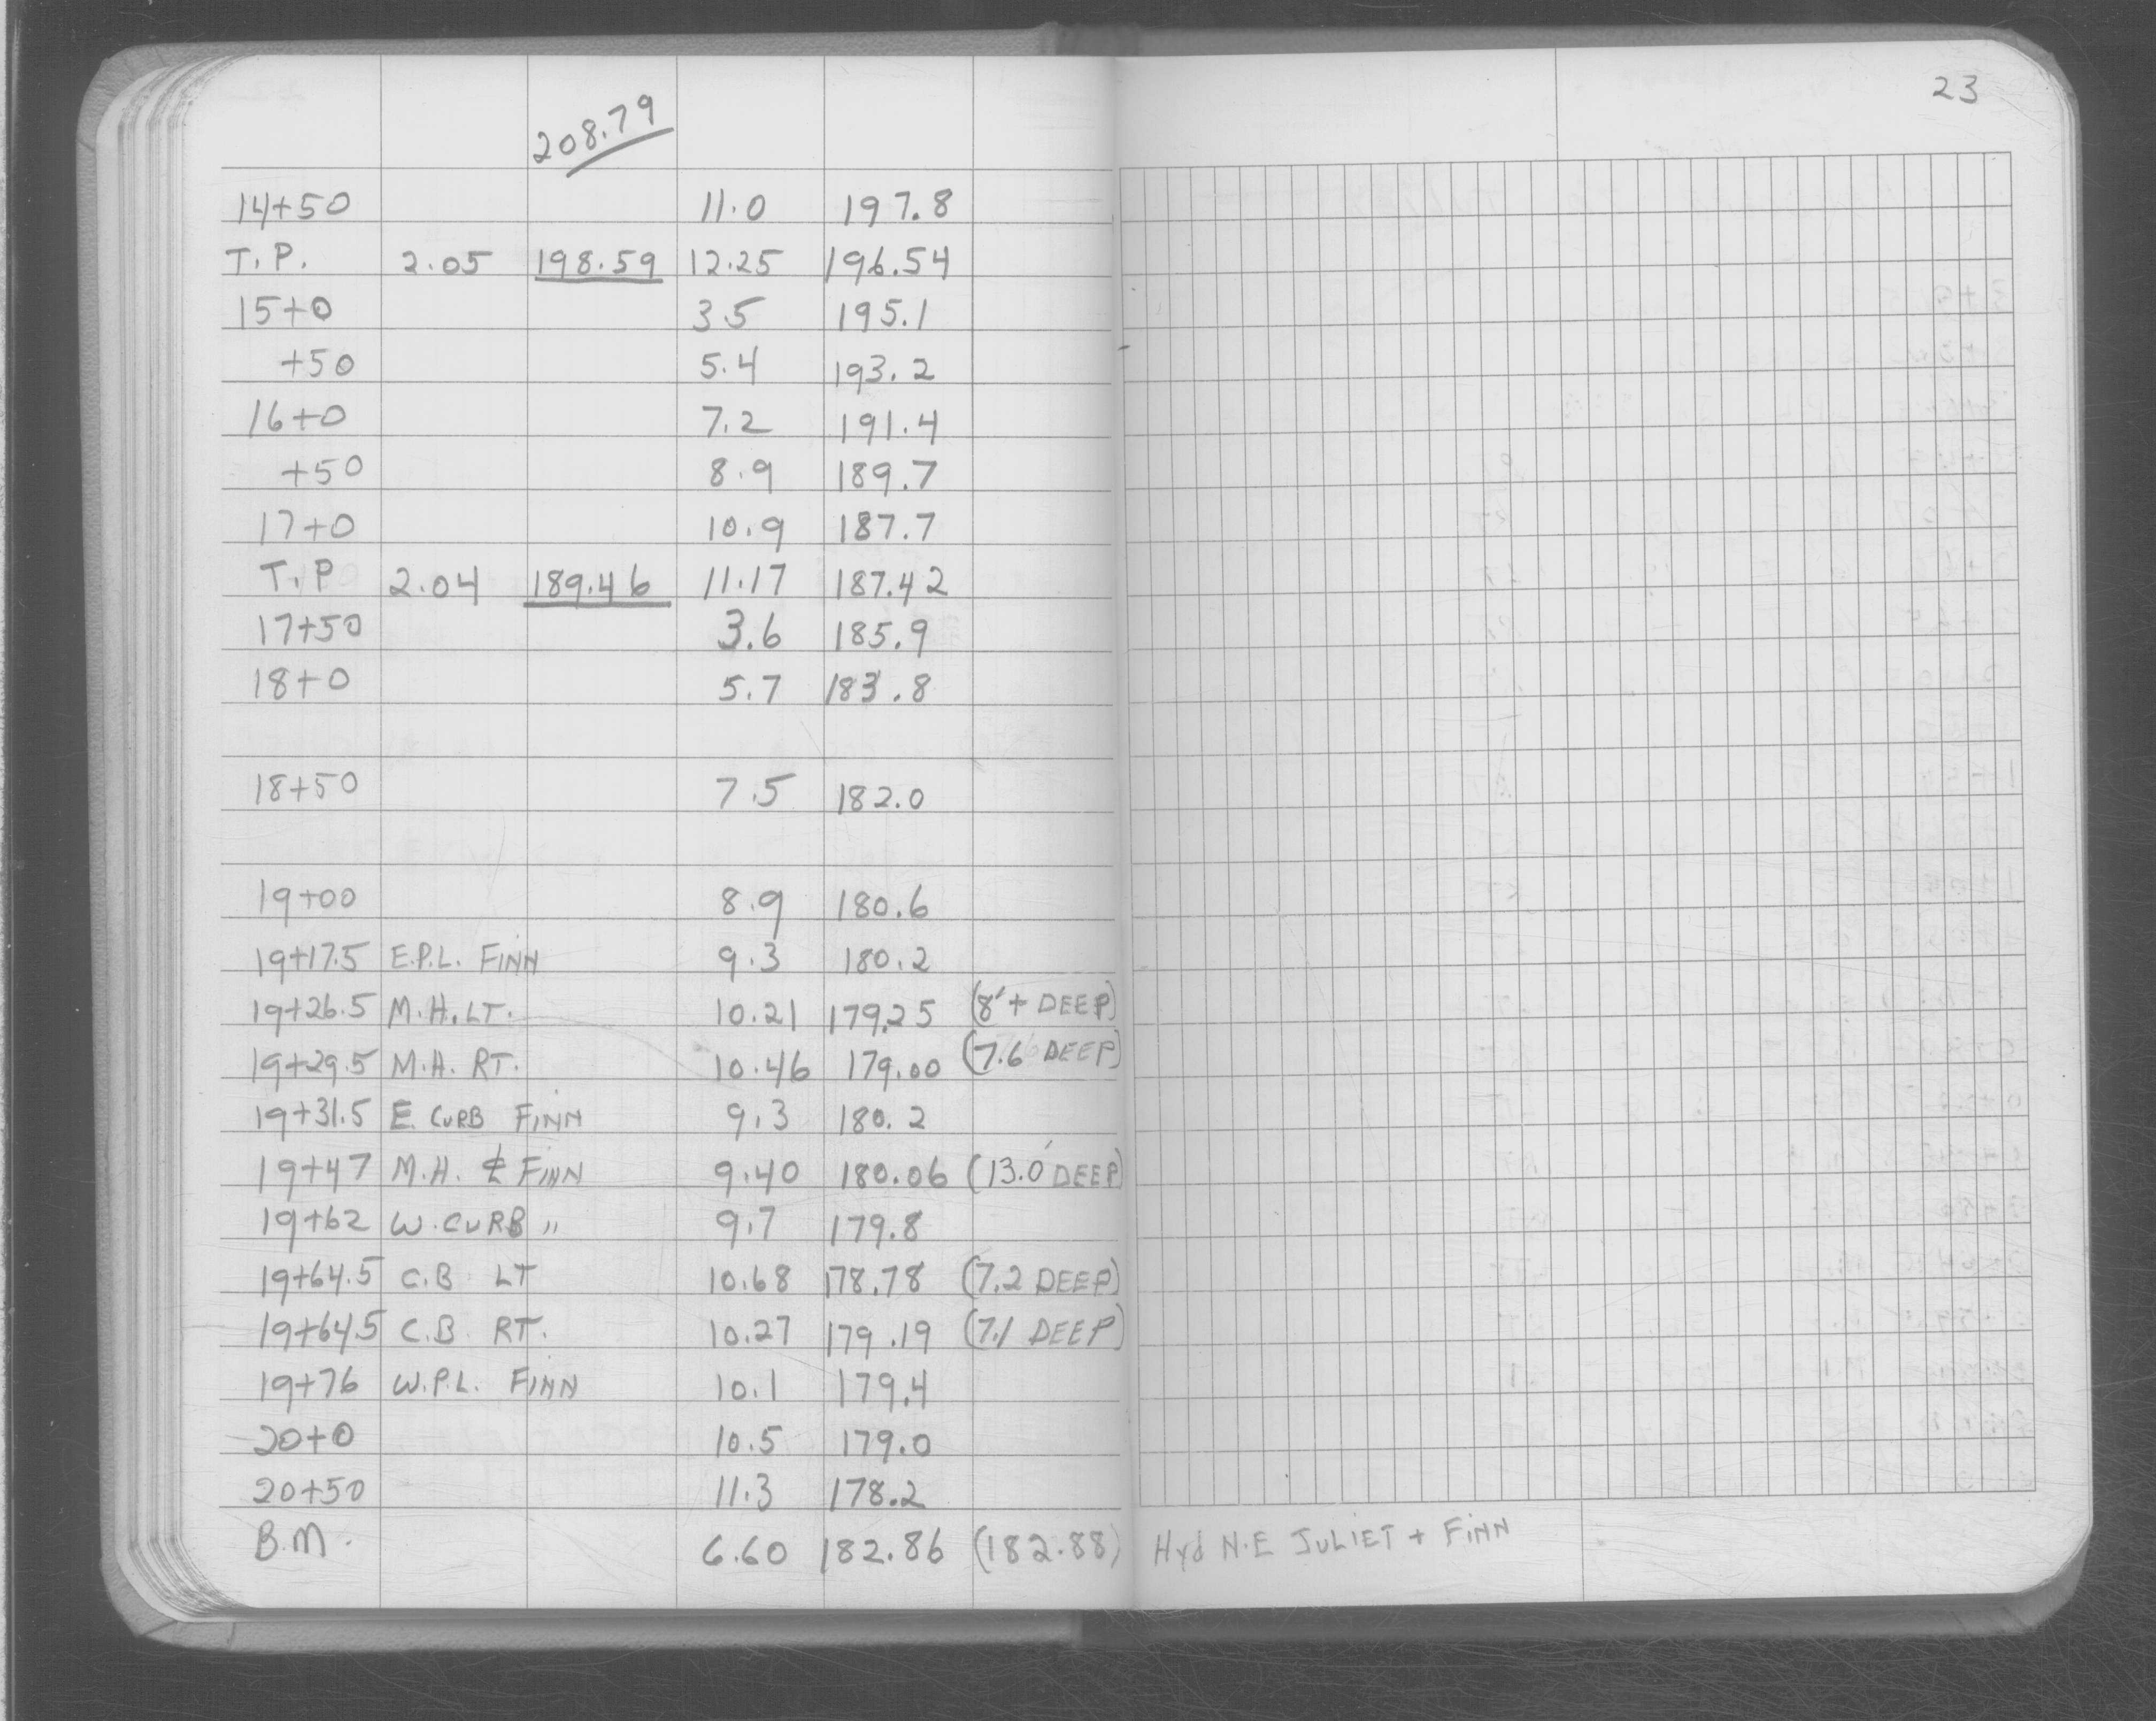 23
208.79
14+50 11.0 197.8
T.P. 2.05 198.59 12.25 196.54
15+0 3.5 195.1
+50 5.4 193.2
16+0 7.2 191.4
+50 8.9 189.7
17+0 10.9 187.7
T.P 2.04 189.46 11.17 187.42
17+50 3.6 185.9
18+0 5.7 183.8
18+50 7.5 182.0
19+00 8.9 180.6
19+17.5 E.P.L. FINN 9.3 180.2
19+26.5 M.H. LT. 10.21 179.25 (8'+ DEEP)
19+29.5 M.H. RT. 10.46 179.00 (7.6 DEEP)
19+31.5 E. CURB FINN 9.3 180.2
19+47 M.H. ℄ FINN 9.40 180.06 (13.0' DEEP)
19+62 W. CURB " 9.7 179.8
19+64.5 C.B LT 10.68 178.78 (7.2 DEEP)
19+64.5 C.B. RT. 10.27 179.19 (7.1 DEEP)
19+76 W.P.L. FINN 10.1 179.4
20+0 10.5 179.0
20+50 11.3 178.2
B.M. 6.60 182.86 (182.88) Hyd N.E JULIET + FINN